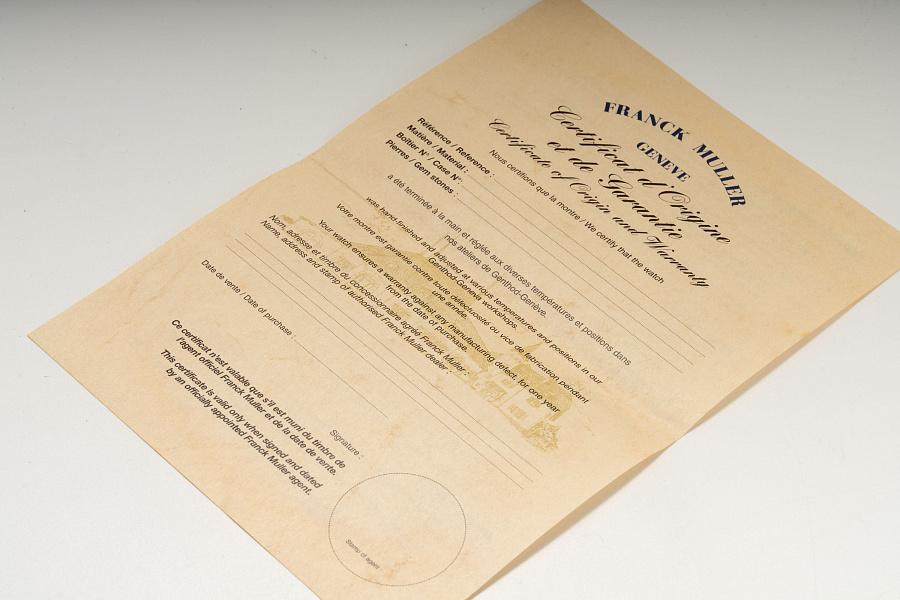 FRANCK MULLER
GENEVE
Certificat d'Origine
et de Garantie
Certificate of Origin and Warranty
Nous certifions que la montre / We certify that the watch
Référence / Reference :
Matière / Material :
Boîtier N° / Case N° :
Pierres / Gem stones :
a été terminée à la main et réglée aux diverses températures et positions dans
nos ateliers de Genthod-Genève.
was hand-finished and adjusted at various temperatures and positions in our
Genthod-Geneva workshops.
Votre montre est garantie contre toute défectuosité ou vice de fabrication pendant
une année.
Your watch ensures a warranty against any manufacturing defect, for one year
from the date of purchase.
Nom, adresse et timbre du concessionnaire agréé Franck Muller
Name, address and stamp of authorised Franck Muller dealer
Date de vente / Date of purchase :
Signature :
Ce certificat n'est valable que s'il est muni du timbre de
l'agent officiel Franck Muller et de la date de vente.
This certificate is valid only when signed and dated
by an officially appointed Franck Muller agent.
Stamp of agent